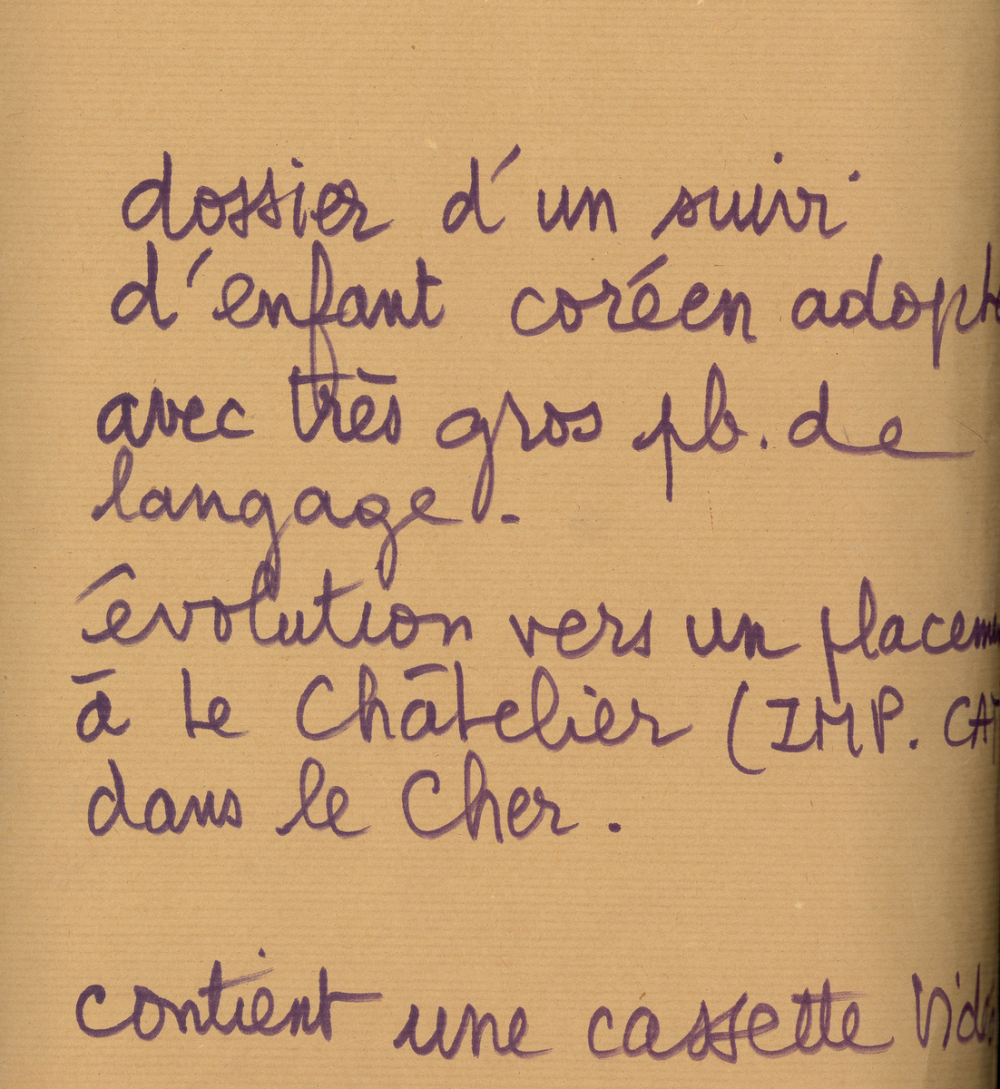 dossier d'un suivi
d'enfant coréen adopt
avec très gros pb. de
langage.
évolution vers un placem
à Le Châtelier (IMP. CAT
dans le Cher.
contient une cassette vidé